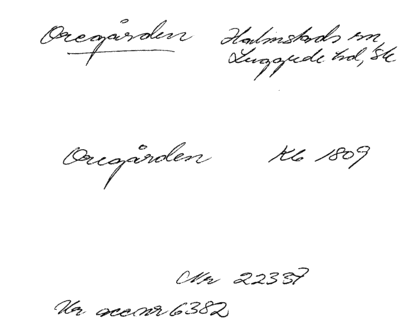 Oregården Halmstads sn
Luggude hd, Sk
Oregården Kb 1809
Nr 22337
Ur accnr 6382